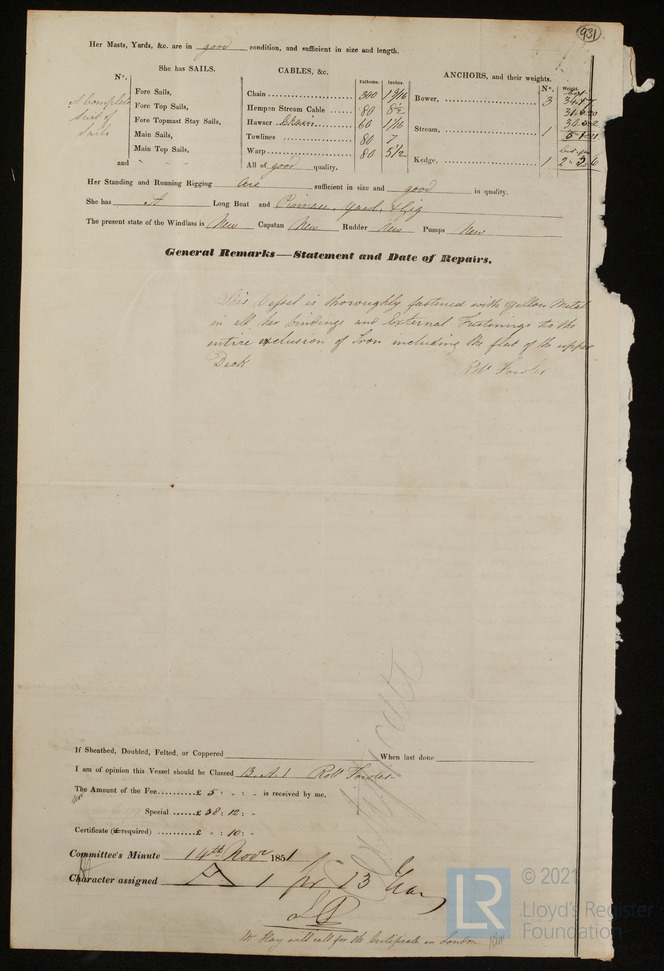 931
Her Masts, Yards, &c. are in good condition, and sufficient in size and length.
She has SAILS.
CABLES, &c.
Fathoms. Inches.
ANCHORS, and their weights.
Nº.
Nº. Weight.
A Complete Suit of Sails
Fore Sails,
Fore Top Sails,
Fore Topmast Stay Sails,
Main Sails,
Main Top Sails,
and
Chain 300 1 9/16
Hempen Stream Cable 80 8½
Hawser Chain 60 1 1/16
Towlines 80 7
Warp 80 5½
All of good quality.
Bower, 3
Stream, 1
Kedge, 1
Her Standing and Running Rigging are sufficient in size and good in quality.
She has A Long Boat and Pinnace, Yawl, & Gig
The present state of the Windlass is New Capstan New Rudder New Pumps New
General Remarks—Statement and Date of Repairs.
This Vessel is thoroughly fastened with Yellow Metal
in all her bindings and External Fastenings to the
entire exclusion of Iron including the flat of the upper
Deck
Robt Fowles
If Sheathed, Doubled, Felted, or Coppered When last done
I am of opinion this Vessel should be Classed 13. A. 1 Robt Fowles
The Amount of the Fee £ 5 : - : - is received by me,
Special £ 38 : 12 : -
Certificate (if required) £ - : 10 : -
Committee's Minute 14th Novr 1851
Character assigned A 1 for 13 Years
Mr Hay will call for the Certificate in London
LR
© 2021
Lloyd's Register
Foundation